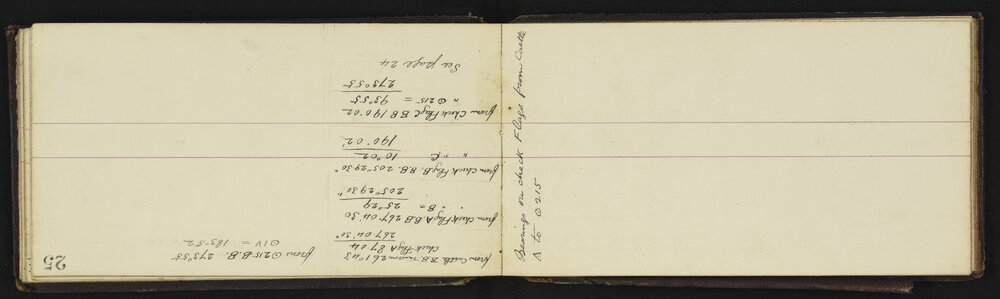 25
from ⊙215 B.B. 273°55
⊙IV = 185°52
from Castle B.B. 261°43
Check Flag A 87.04
267.04'30"
from check Flag A BB 267.04'30
" B = 25°29
205°29'30"
from check Flag B. B.B. 205°29'30"
" " C 10°02
190°02'
from Check Flag C BB 190°02
" ⊙215 = 93°55
273°55
See page 24
Bearings on check Flags from Castle
Δ to ⊙215